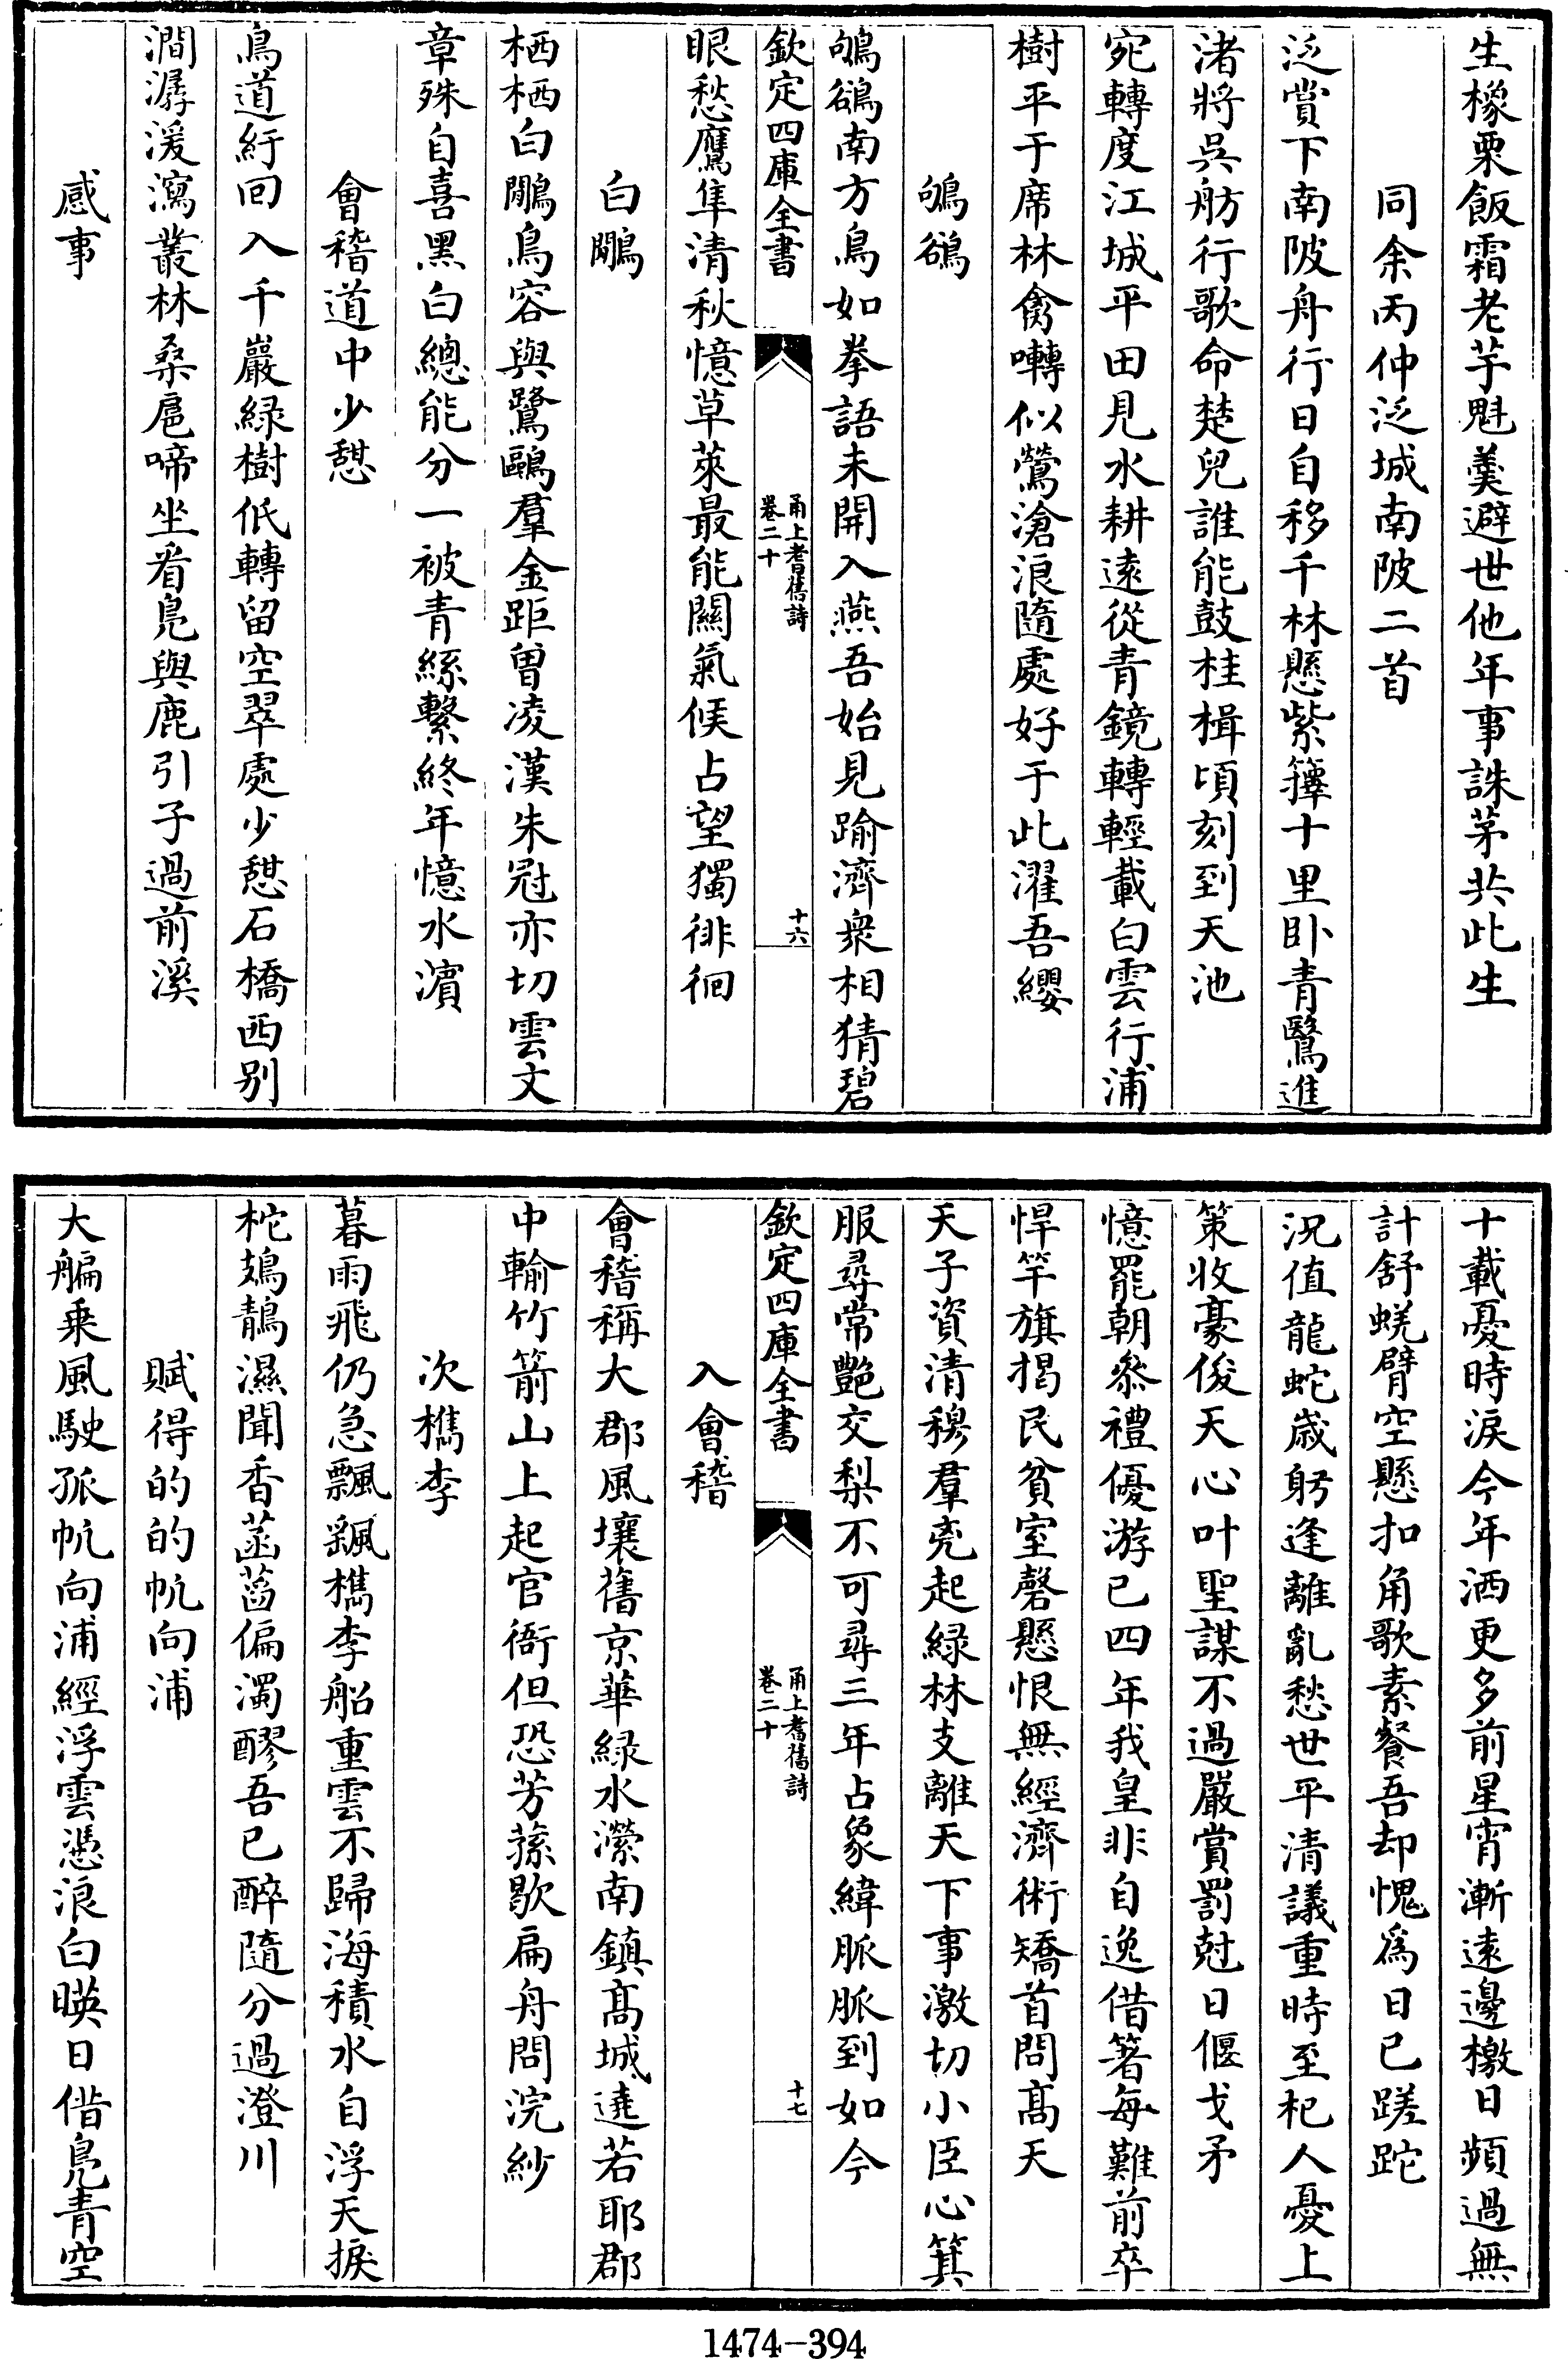 生橡栗飯霜老芋魁羮避世他年事誅茅共此生
同余丙仲泛城南陂二首
泛賞下南陂舟行日自移千林懸紫籜十里卧青鷖進
渚將吳舫行歌命楚兒誰能鼓桂楫頃刻到天池
宛轉度江城平田見水耕遠從青鏡轉輕載白雲行浦
樹平于席林禽囀似鶯滄浪隨處好于此濯吾纓
鴝鵒
鴝鵒南方鳥如拳語未開入燕吾始見踰濟衆相猜碧
欽定四庫全書
甬上耆舊詩
卷二十
十六
眼愁鷹隼清秋憶草萊最能關氣候占望獨徘徊
白鷴
栖栖白鷴鳥容與鷺鷗羣金距曾凌漢朱冠亦切雲文
章殊自喜黑白總能分一被青絲繫終年憶水濆
會稽道中少憇
鳥道紆回入千巖緑樹低轉留空翠處少憇石橋西别
澗潺湲瀉叢林桑扈啼坐看鳬與鹿引子過前溪
感事
十載憂時淚今年洒更多前星宵漸遠邊檄日頻過無
計舒蜣臂空懸扣角歌素餐吾却愧爲日已蹉跎
況值龍蛇歳躬逢離亂愁世平清議重時至杞人憂上
策收豪俊天心叶聖謀不過嚴賞罰尅日偃戈矛
憶罷朝叅禮優游已四年我皇非自逸借箸每難前卒
悍竿旗揭民貧室磬懸恨無經濟術矯首問髙天
天子資清穆羣兇起緑林支離天下事激切小臣心箕
服尋常艷交梨不可尋三年占象緯脈脈到如今
欽定四庫全書
甬上耆舊詩
卷二十
十七
入會稽
會稽稱大郡風壤舊京華緑水瀠南鎮髙城遶若耶郡
中輸竹箭山上起官衙但恐芳蓀歇扁舟問浣紗
次檇李
暮雨飛仍急飄颻檇李船重雲不歸海積水自浮天捩
柁鵁鶄濕聞香菡萏偏濁醪吾已醉隨分過澄川
賦得的的帆向浦
大艑乗風駛孤帆向浦經浮雲憑浪白暎日偕鳬青空
1474-394